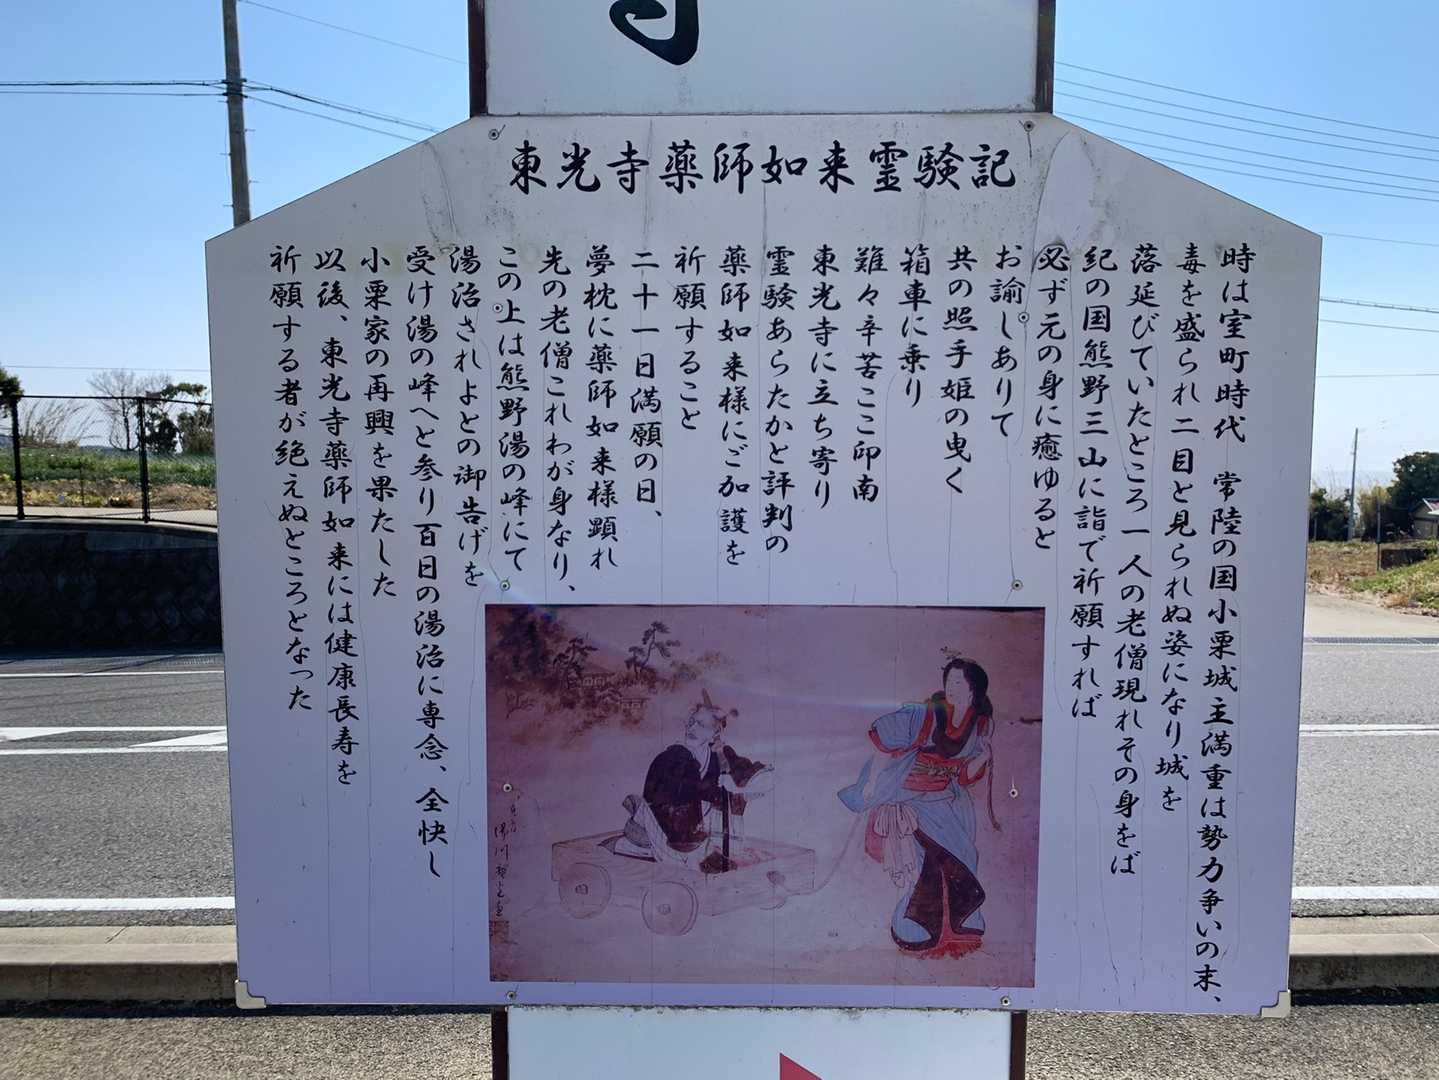 東光寺薬師如来霊験記
時は室町時代 常陸の国小栗城主満重は勢力争いの末、
毒を盛られ二目と見られぬ姿になり城を
落延びていたところ一人の老僧現れその身をば
紀の国熊野三山に詣で祈願すれば
必ず元の身に癒ゆると
お諭しありて
共の照手姫の曳く
箱車に乗り
難々辛苦ここ印南
東光寺に立ち寄り
霊験あらたかと評判の
薬師如来様にご加護を
祈願すること
二十一日満願の日、
夢枕に薬師如来様顕れ
先の老僧これわが身なり、
この上は熊野湯の峰にて
湯治されよとの御告げを
受け湯の峰へと参り百日の湯治に専念、全快し
小栗家の再興を果たした
以後、東光寺薬師如来には健康長寿を
祈願する者が絶えぬところとなった